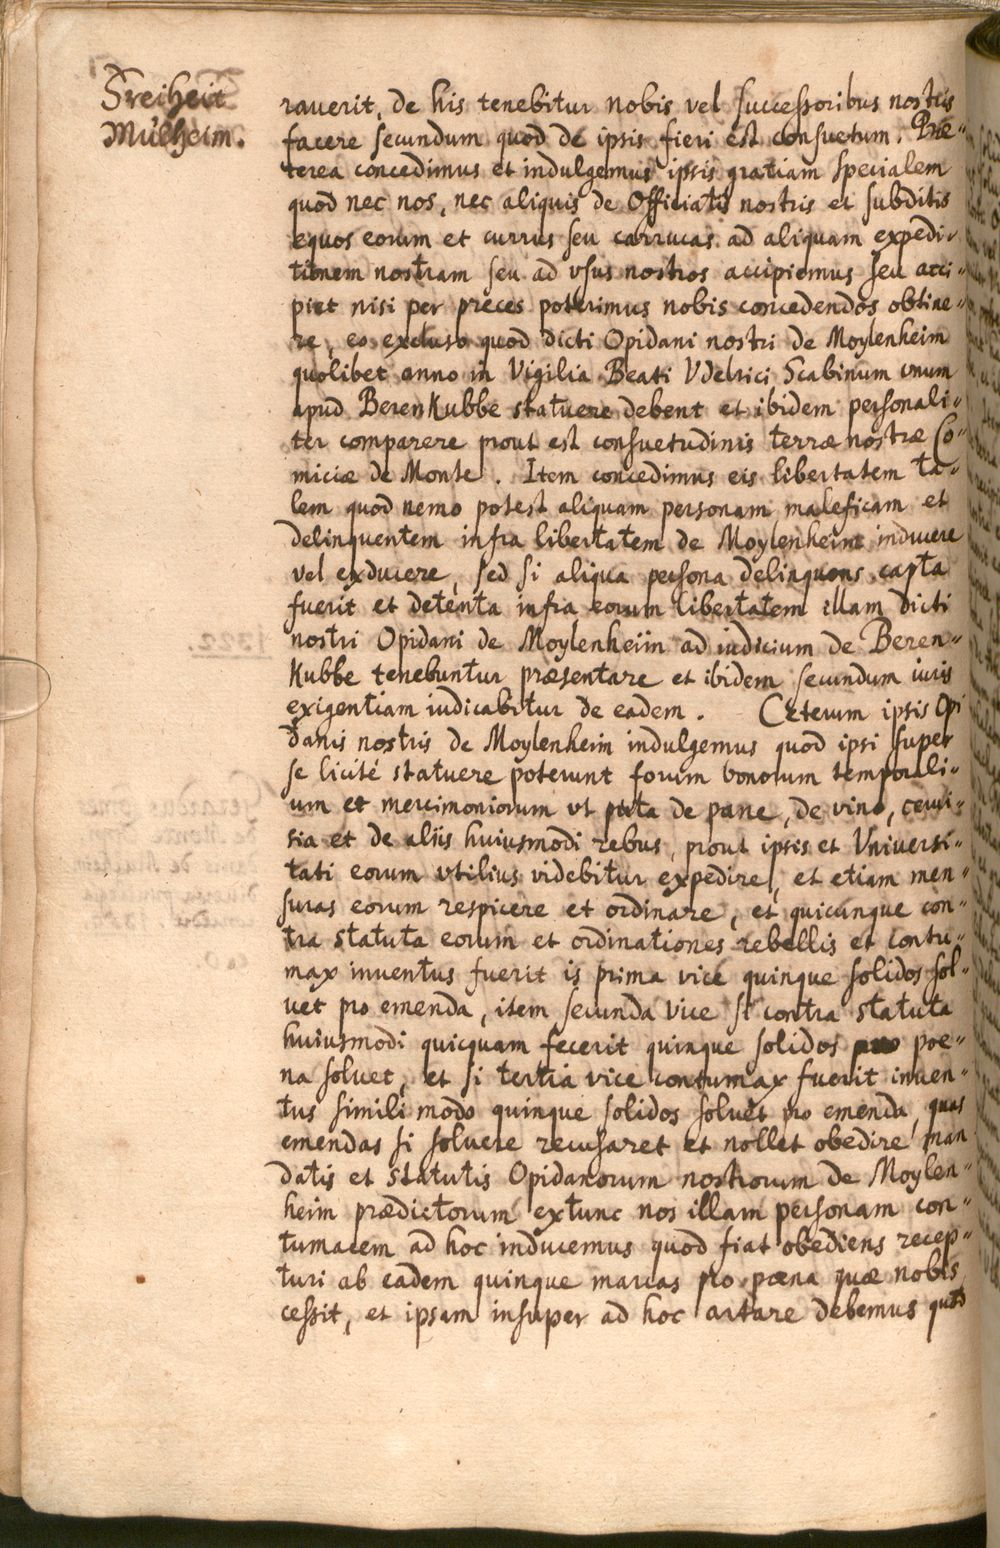 Freiheit
Mülheim.
rauerit, de his tenebitur nobis vel successoribus nostris
facere secundum quod de ipsis fieri est consuetum. Præ-
terea concedimus et indulgemus ipsis gratiam specialem
quod nec nos, nec aliquis de Officiatis nostris et subditis
equos eorum et currus seu carrucas ad aliquam expedi-
tionem nostram seu ad vsus nostros accipiemus seu acci-
piet nisi per preces poterimus nobis concedendos obtine-
re, eo excluso quod dicti Opidani nostri de Moylenheim
quolibet anno in Vigilia Beati Vdelrici Scabinum vnum
apud BerenKubbe statuere debent et ibidem personali-
ter comparere prout est consuetudinis terræ nostræ Co-
miciæ de Monte. Item concedimus eis libertatem ta-
lem quod nemo potest aliquam personam maleficam et
delinquentem infra libertatem de Moylenheim inducere
vel exducere, sed si aliqua persona delinquens capta
fuerit et detenta infra eorum libertatem illam dicti
nostri Opidani de Moylenheim ad iudicium de Beren-
Kubbe tenebuntur præsentare et ibidem secundum iuris
exigentiam iudicabitur de eadem. Ceterum ipsis Opi
danis nostris de Moylenheim indulgemus quod ipsi super
se licité statuere poterunt forum bonorum temporali-
um et mercimoniorum vt puta de pane, de vino, cerui-
sia et de aliis huiusmodi rebus, prout ipsis et Vniversi-
tati eorum vtilius videbitur expedire, et etiam men-
suras eorum respicere et ordinare, et quicunque con-
tra statuta eorum et ordinationes rebellis et contu-
max inventus fuerit is prima vice quinque solidos sol-
vet pro emenda, item secunda vice si contra statuta
huiusmodi quicquam fecerit quinque solidos pro poe-
na solvet, et si tertia vice contumax fuerit inven-
tus simili modo quinque solidos solvet pro emenda, quas
emendas si solvere recusaret et nollet obedire man
datis et statutis Opidanorum nostrorum de Moylen-
heim prædictorum extunc nos illam personam con-
tumacem ad hoc inducemus quod fiat obediens recep-
turi ab eadem quinque marcas pro pœna quæ nobis
cessit, et ipsam insuper ad hoc artare debemus quod